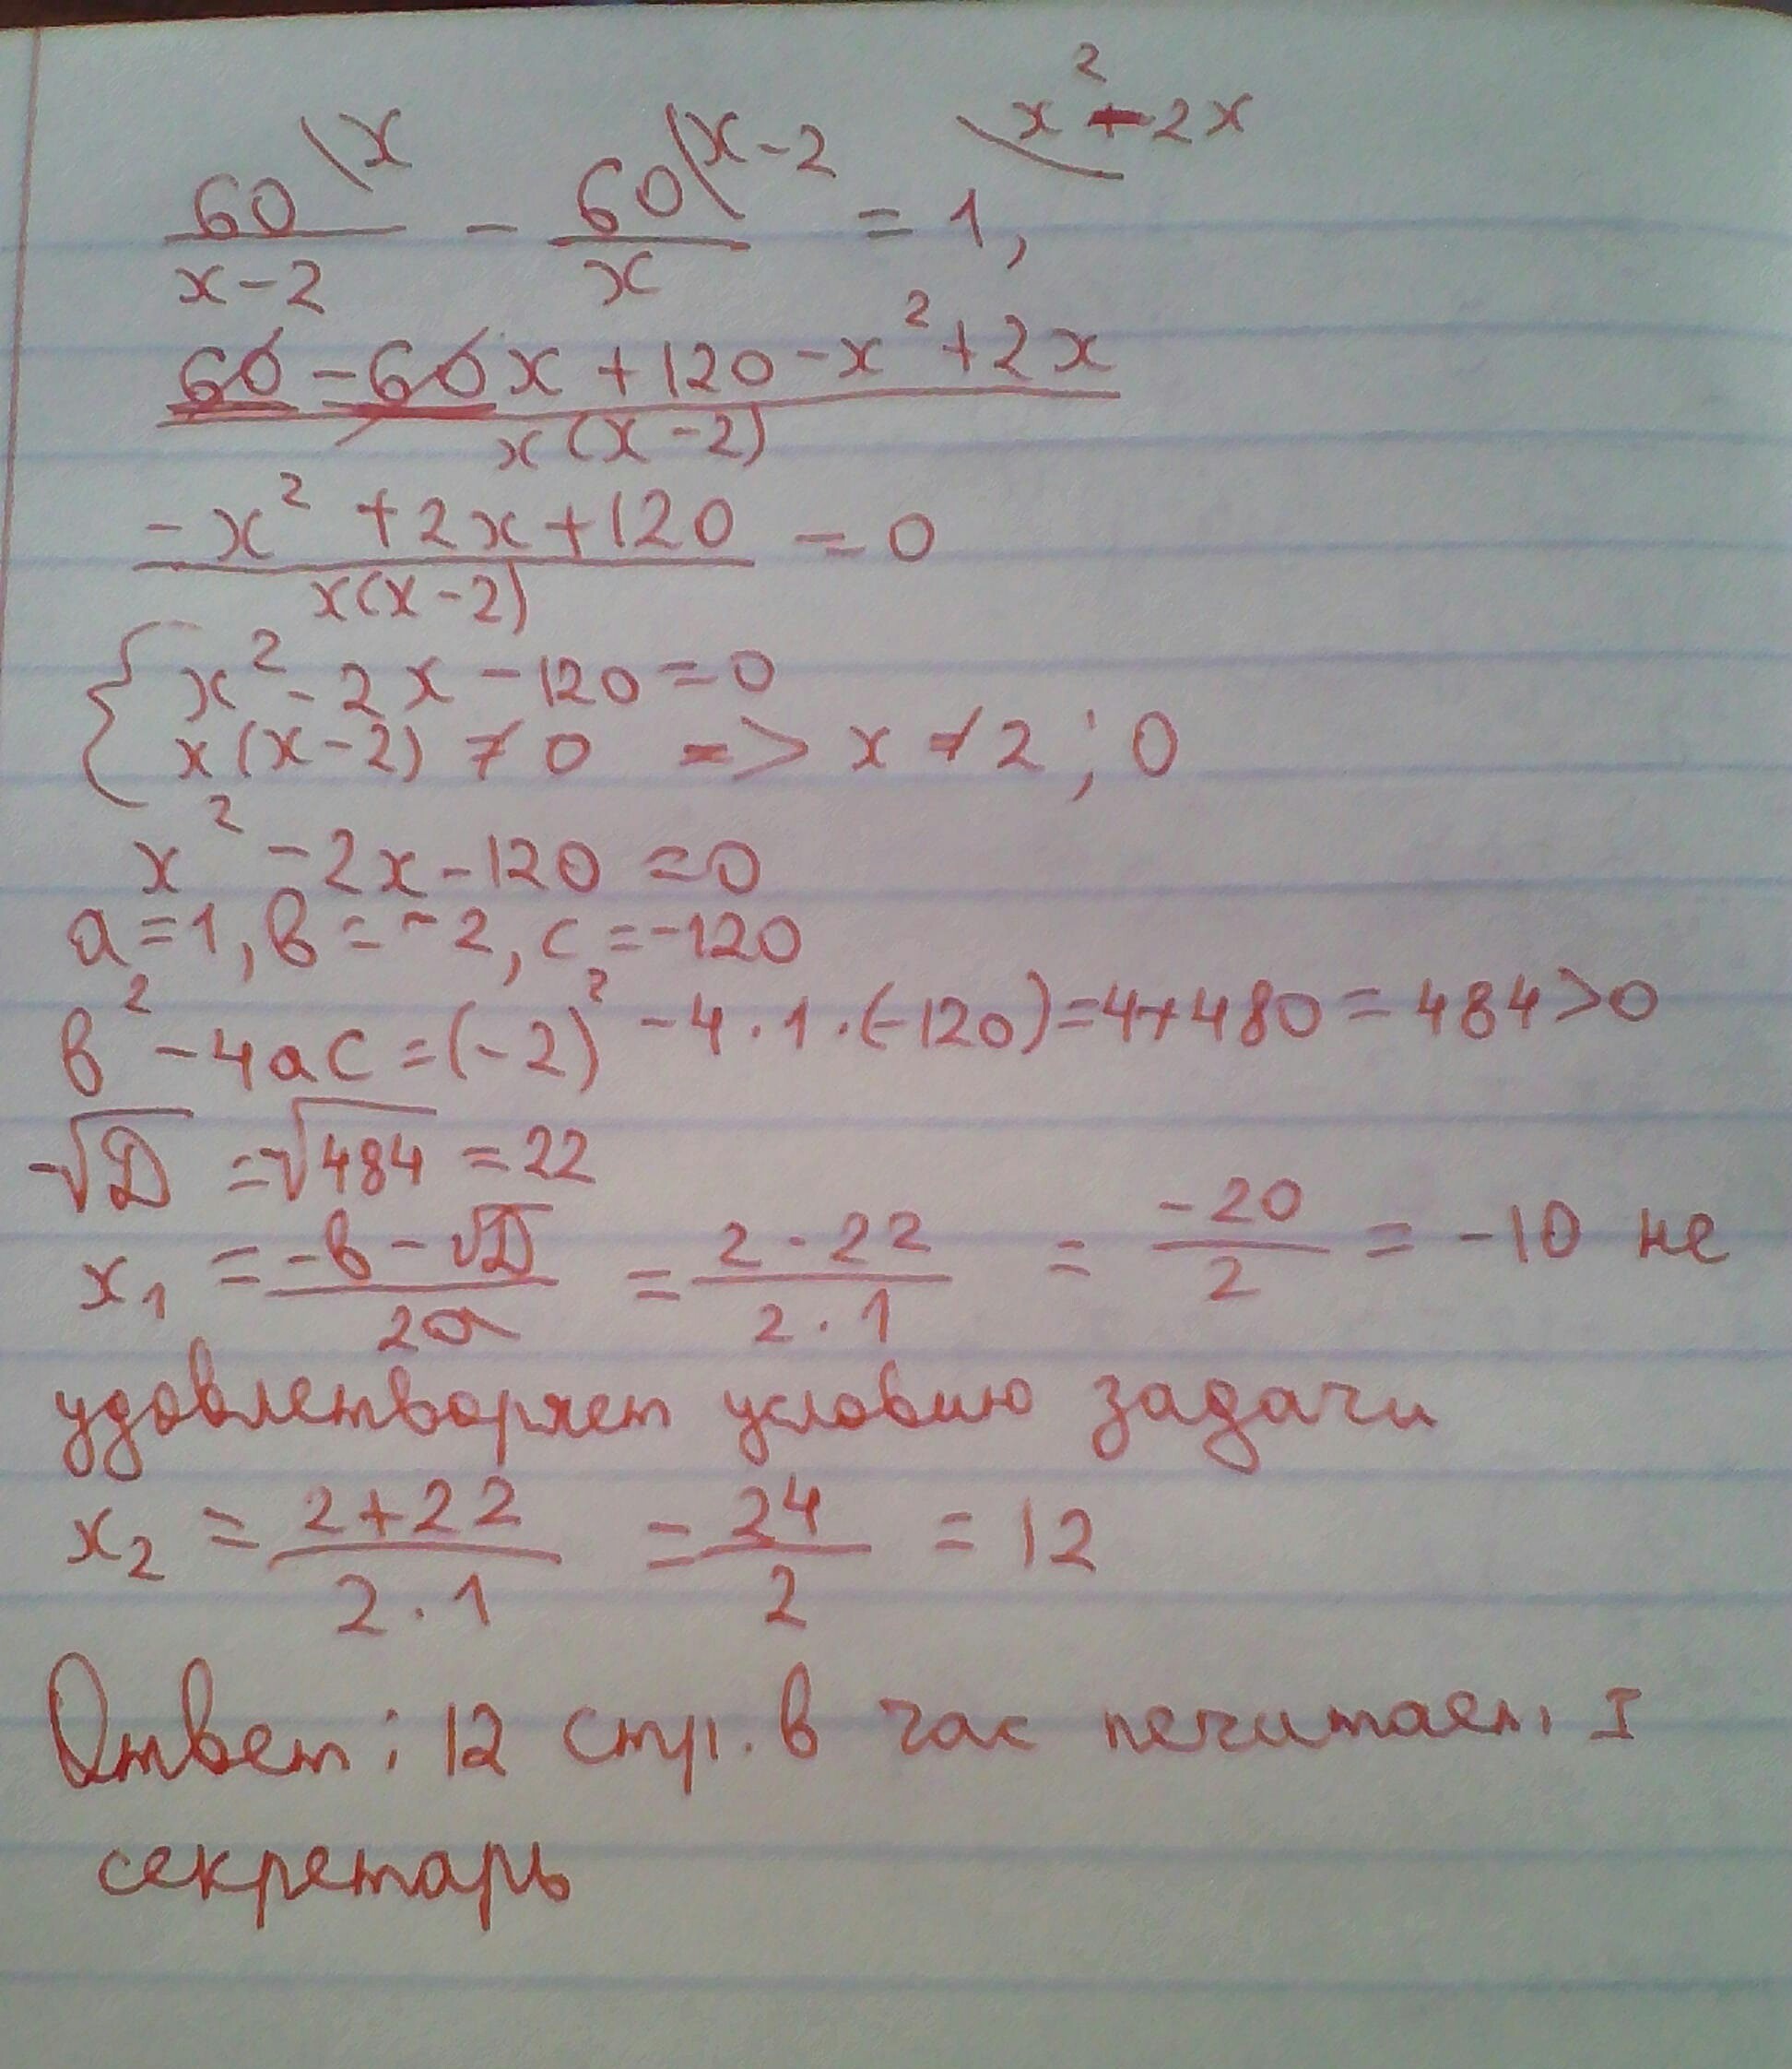 60\x / x-2 - 60\x-2 / x = 1, \x²-2x
60-60x+120-x²+2x / x(x-2)
-x²+2x+120 / x(x-2) = 0
{ x²-2x-120=0
x(x-2)≠0 => x≠2;0
x²-2x-120=0
a=1, в=-2, c=-120
в²-4ac=(-2)²-4·1·(-120)=4+480=484>0
√D=√484=22
x₁ = -в-√D / 2a = 2-22 / 2·1 = -20 / 2 = -10 не
удовлетворяет условию задачи
x₂ = 2+22 / 2·1 = 24 / 2 = 12
Ответ: 12 стр. в час печатает I
секретарь